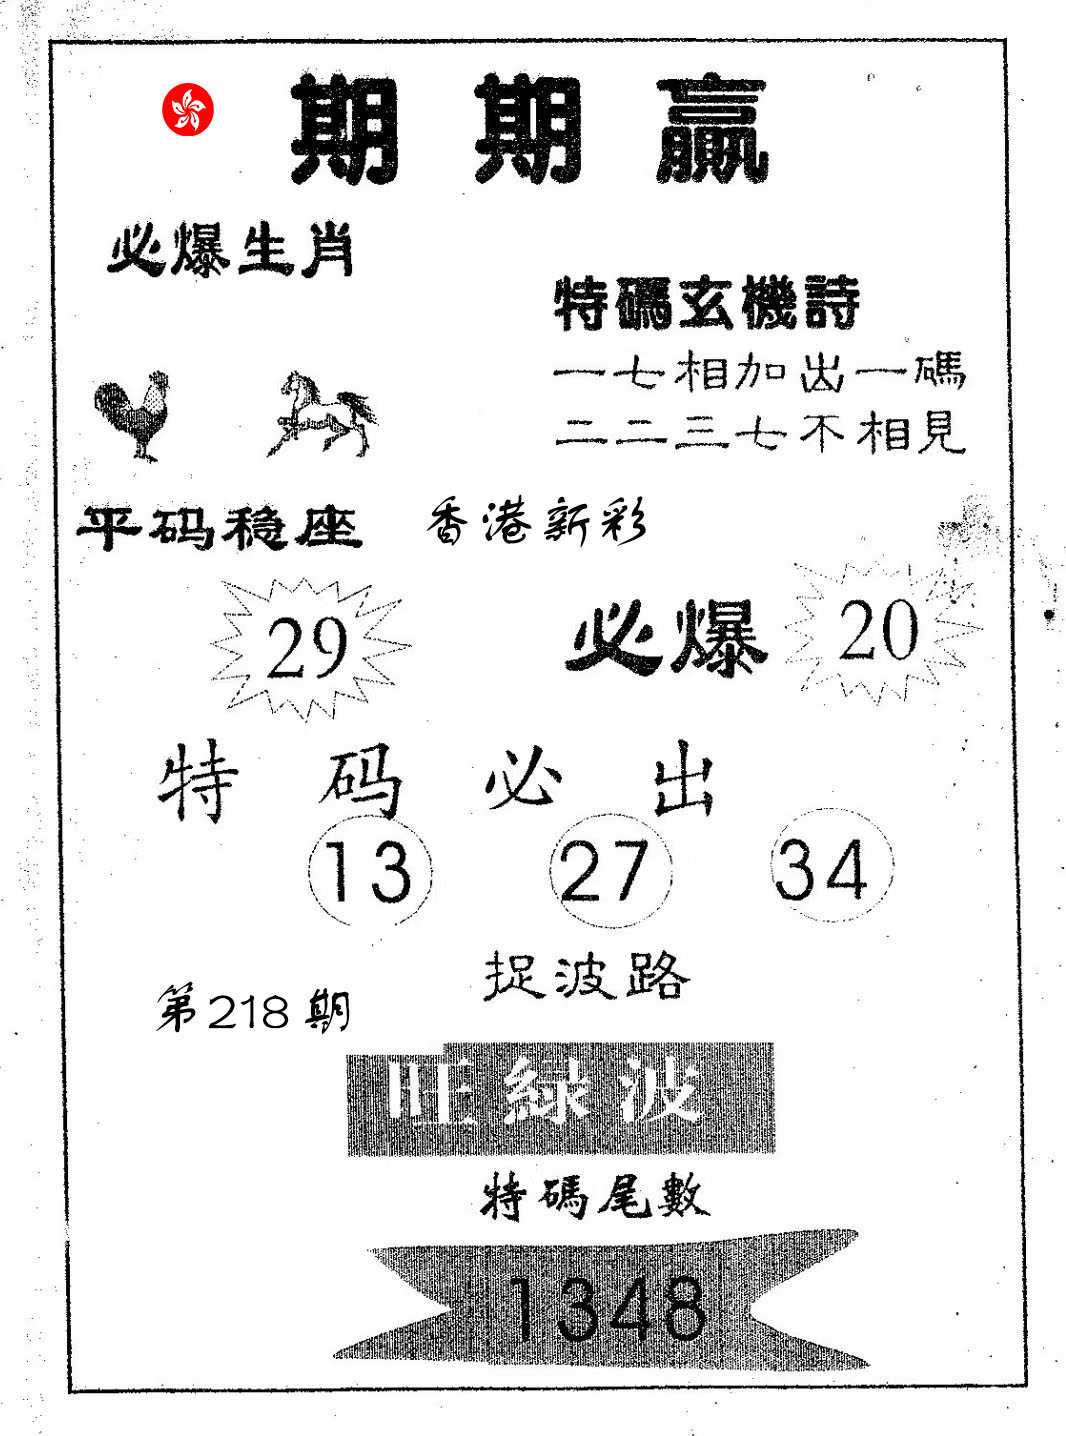 期期贏
必爆生肖
特碼玄機詩
一七相加出一碼
二二三七不相見
平码稳座
香港新彩
29
必爆 20
特码必出
13 27 34
捉波路
第218期
旺緑波
特碼尾數
1348